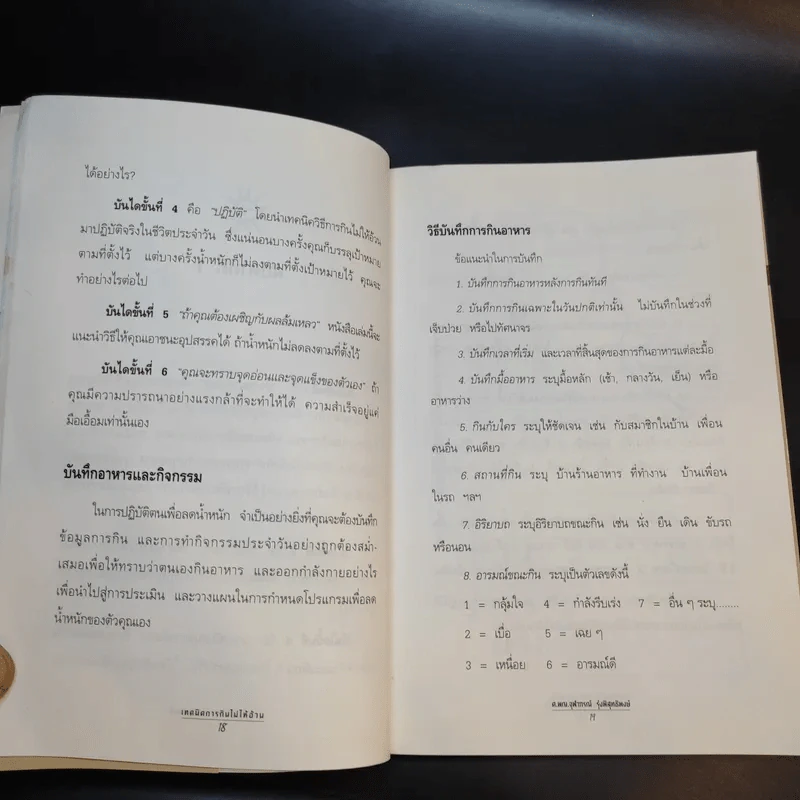 ได้อย่างไร?
บันไดขั้นที่ 4 คือ "ปฏิบัติ" โดยนำเทคนิควิธีการกินไม่ให้อ้วน
มาปฏิบัติจริงในชีวิตประจำวัน ซึ่งแน่นอนบางครั้งคุณก็บรรลุเป้าหมาย
ตามที่ตั้งไว้ แต่บางครั้งน้ำหนักก็ไม่ลงตามที่ตั้งเป้าหมายไว้ คุณจะ
ทำอย่างไรต่อไป
บันไดขั้นที่ 5 "ถ้าคุณต้องเผชิญกับผลล้มเหลว" หนังสือเล่มนี้จะ
แนะนำวิธีให้คุณเอาชนะอุปสรรคได้ ถ้าน้ำหนักไม่ลดลงตามที่ตั้งไว้
บันไดขั้นที่ 6 "คุณจะทราบจุดอ่อนและจุดแข็งของตัวเอง" ถ้า
คุณมีความปรารถนาอย่างแรงกล้าที่จะทำให้ได้ ความสำเร็จอยู่แค่
มือเอื้อมเท่านั้นเอง
บันทึกอาหารและกิจกรรม
ในการปฏิบัติตนเพื่อลดน้ำหนัก จำเป็นอย่างยิ่งที่คุณจะต้องบันทึก
ข้อมูลการกิน และการทำกิจกรรมประจำวันอย่างถูกต้องสม่ำ-
เสมอเพื่อให้ทราบว่าตนเองกินอาหาร และออกกำลังกายอย่างไร
เพื่อนำไปสู่การประเมิน และวางแผนในการกำหนดโปรแกรมเพื่อลด
น้ำหนักของตัวคุณเอง
เทคนิคการกินไม่ให้อ้วน
18
วิธีบันทึกการกินอาหาร
ข้อแนะนำในการบันทึก
1. บันทึกการกินอาหารหลังการกินทันที
2. บันทึกการกินเฉพาะในวันปกติเท่านั้น ไม่บันทึกในช่วงที่
เจ็บป่วย หรือไปทัศนาจร
3. บันทึกเวลาที่เริ่ม และเวลาที่สิ้นสุดของการกินอาหารแต่ละมื้อ
4. บันทึกมื้ออาหาร ระบุมื้อหลัก (เช้า, กลางวัน, เย็น) หรือ
อาหารว่าง
5. กินกับใคร ระบุให้ชัดเจน เช่น กับสมาชิกในบ้าน เพื่อน
คนอื่น คนเดียว
6. สถานที่กิน ระบุ บ้านร้านอาหาร ที่ทำงาน บ้านเพื่อน
ในรถ ฯลฯ
7. อิริยาบถ ระบุอิริยาบถขณะกิน เช่น นั่ง ยืน เดิน ขับรถ
หรือนอน
8. อารมณ์ขณะกิน ระบุเป็นตัวเลขดังนี้
1 = กลุ้มใจ 4 = กำลังรีบเร่ง 7 = อื่น ๆ ระบุ........
2 = เบื่อ 5 = เฉย ๆ
3 = เหนื่อย 6 = อารมณ์ดี
ศ.พญ.จุฬาภรณ์ รุ่งพิสุทธิพงษ์
19